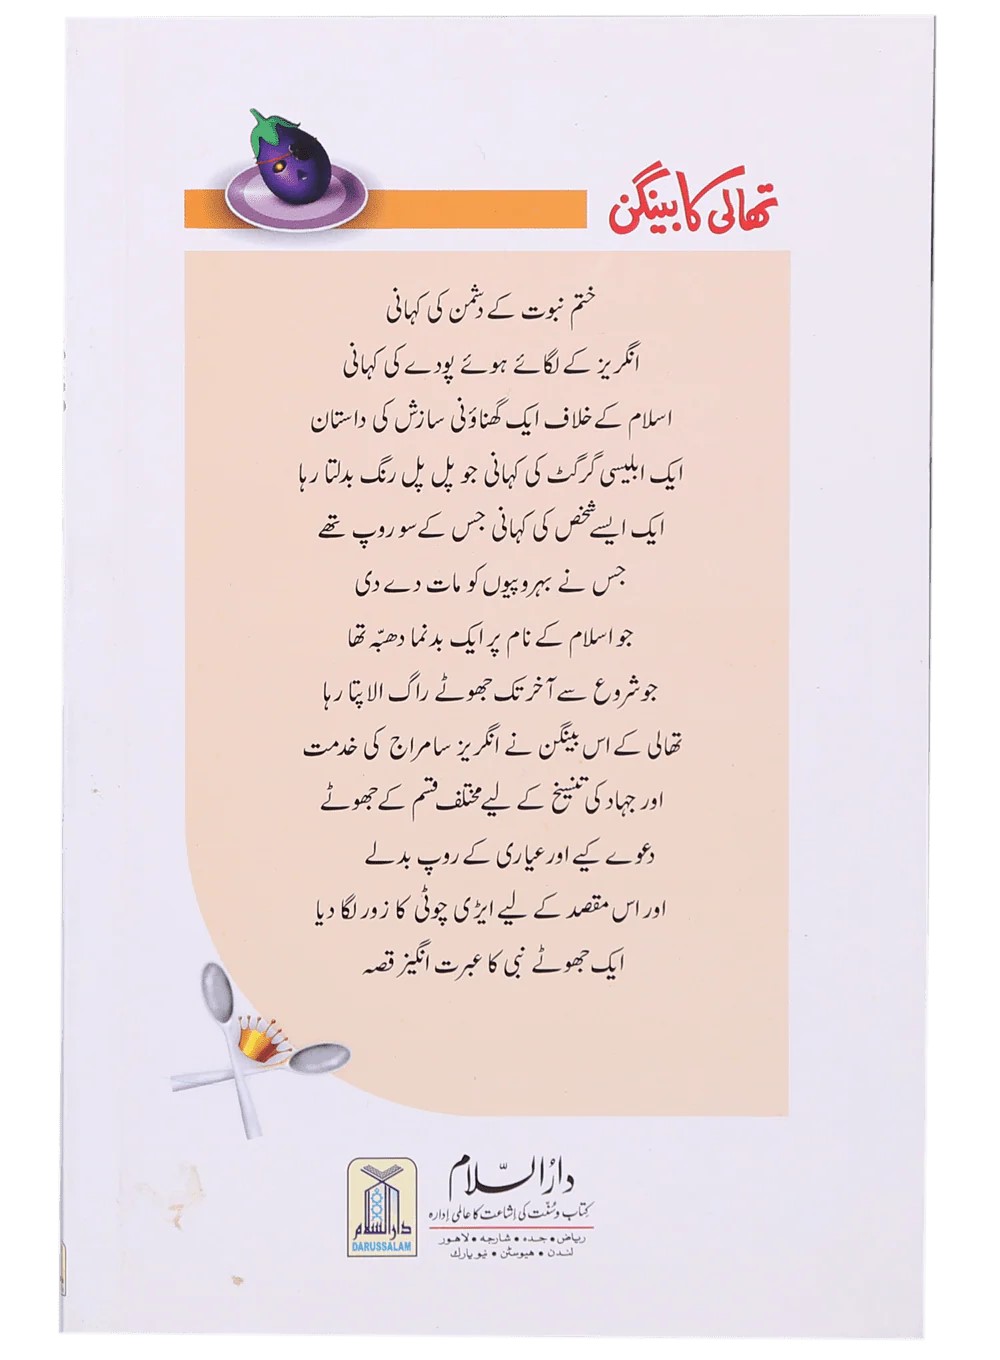 تھالی کا بینگن
ختم نبوت کے دشمن کی کہانی
انگریز کے لگائے ہوئے پودے کی کہانی
اسلام کے خلاف ایک گھناؤنی سازش کی داستان
ایک ابلیسی گرگٹ کی کہانی جو پل پل رنگ بدلتا رہا
ایک ایسے شخص کی کہانی جس کے سو روپ تھے
جس نے بہروپیوں کو مات دے دی
جو اسلام کے نام پر ایک بدنما دھبّہ تھا
جو شروع سے آخر تک جھوٹے راگ الاپتا رہا
تھالی کے اس بینگن نے انگریز سامراج کی خدمت
اور جہاد کی تنسیخ کے لیے مختلف قسم کے جھوٹے
دعوے کیے اور عیاری کے روپ بدلے
اور اس مقصد کے لیے ایڑی چوٹی کا زور لگا دیا
ایک جھوٹے نبی کا عبرت انگیز قصہ
دارُالسّلام
کتاب و سُنّت کی اِشاعت کا عالمی اِدارہ
ریاض • جدہ • شارجہ • لاہور
لندن • هیوسٹن • نیو یارک
دارالسلام
DARUSSALAM